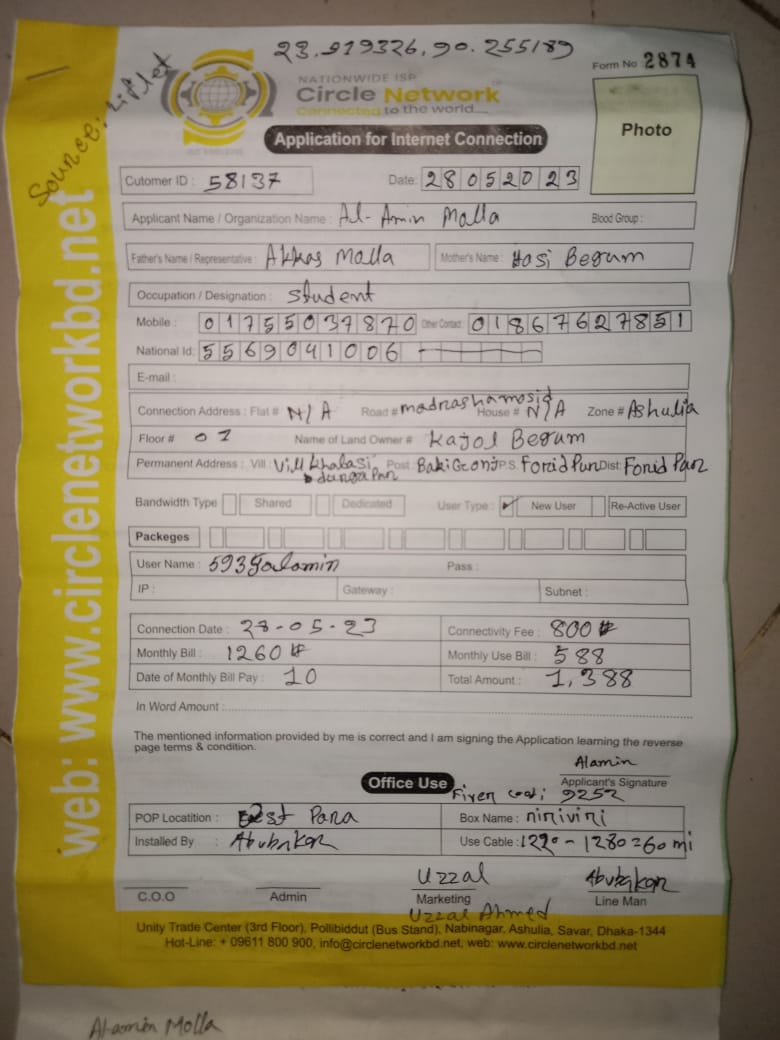 23.919326, 90.255189
Form No 2874
Source: Liflet
NATIONWIDE ISP
Circle Network
Connected to the world....
Application for Internet Connection
Photo
Cutomer ID : 58137 Date: 28052023
Applicant Name / Organization Name : Al-Amin Malla Blood Group :
Father's Name / Representative : Akkas Malla Mother's Name : Hosi Begum
Occupation / Designation : Student
Mobile : 01755037870 Other Contact : 01867627851
National Id: 5569041006
E-mail :
Connection Address : Flat # N/A Road # madrashamosid House # N/A Zone # Ashulia
Floor # 01 Name of Land Owner # Kajol Begum
Permanent Address : Vill : Vill Khalasi Post : BakiGconj P.S. Forid Pur Dist: Forid Pur
dungapur
Bandwidth Type Shared Dedicated User Type : ✓ New User Re-Active User
Packeges
User Name : 5935alamin Pass :
IP : Gateway : Subnet :
Connection Date : 28-05-23 Connectivity Fee : 800 ৳
Monthly Bill : 1260 ৳ Monthly Use Bill : 588
Date of Monthly Bill Pay : 10 Total Amount : 1,388
In Word Amount :
The mentioned information provided by me is correct and I am signing the Application learning the reverse
page terms & condition.
Alamin
Applicant's Signature
Office Use
Fiver code; 9252
POP Locatition : East Para Box Name : niriviri
Installed By : Abubakar Use Cable : 1220 - 1280 = 60 mi
Uzzal Abubakar
C.O.O Admin Marketing Line Man
Uzzal Ahmed
Unity Trade Center (3rd Floor), Pollibiddut (Bus Stand), Nabinagar, Ashulia, Savar, Dhaka-1344
Hot-Line: + 09611 800 900, info@circlenetworkbd.net, web: www.circlenetworkbd.net
web: www.circlenetworkbd.net
Al-amin Molla